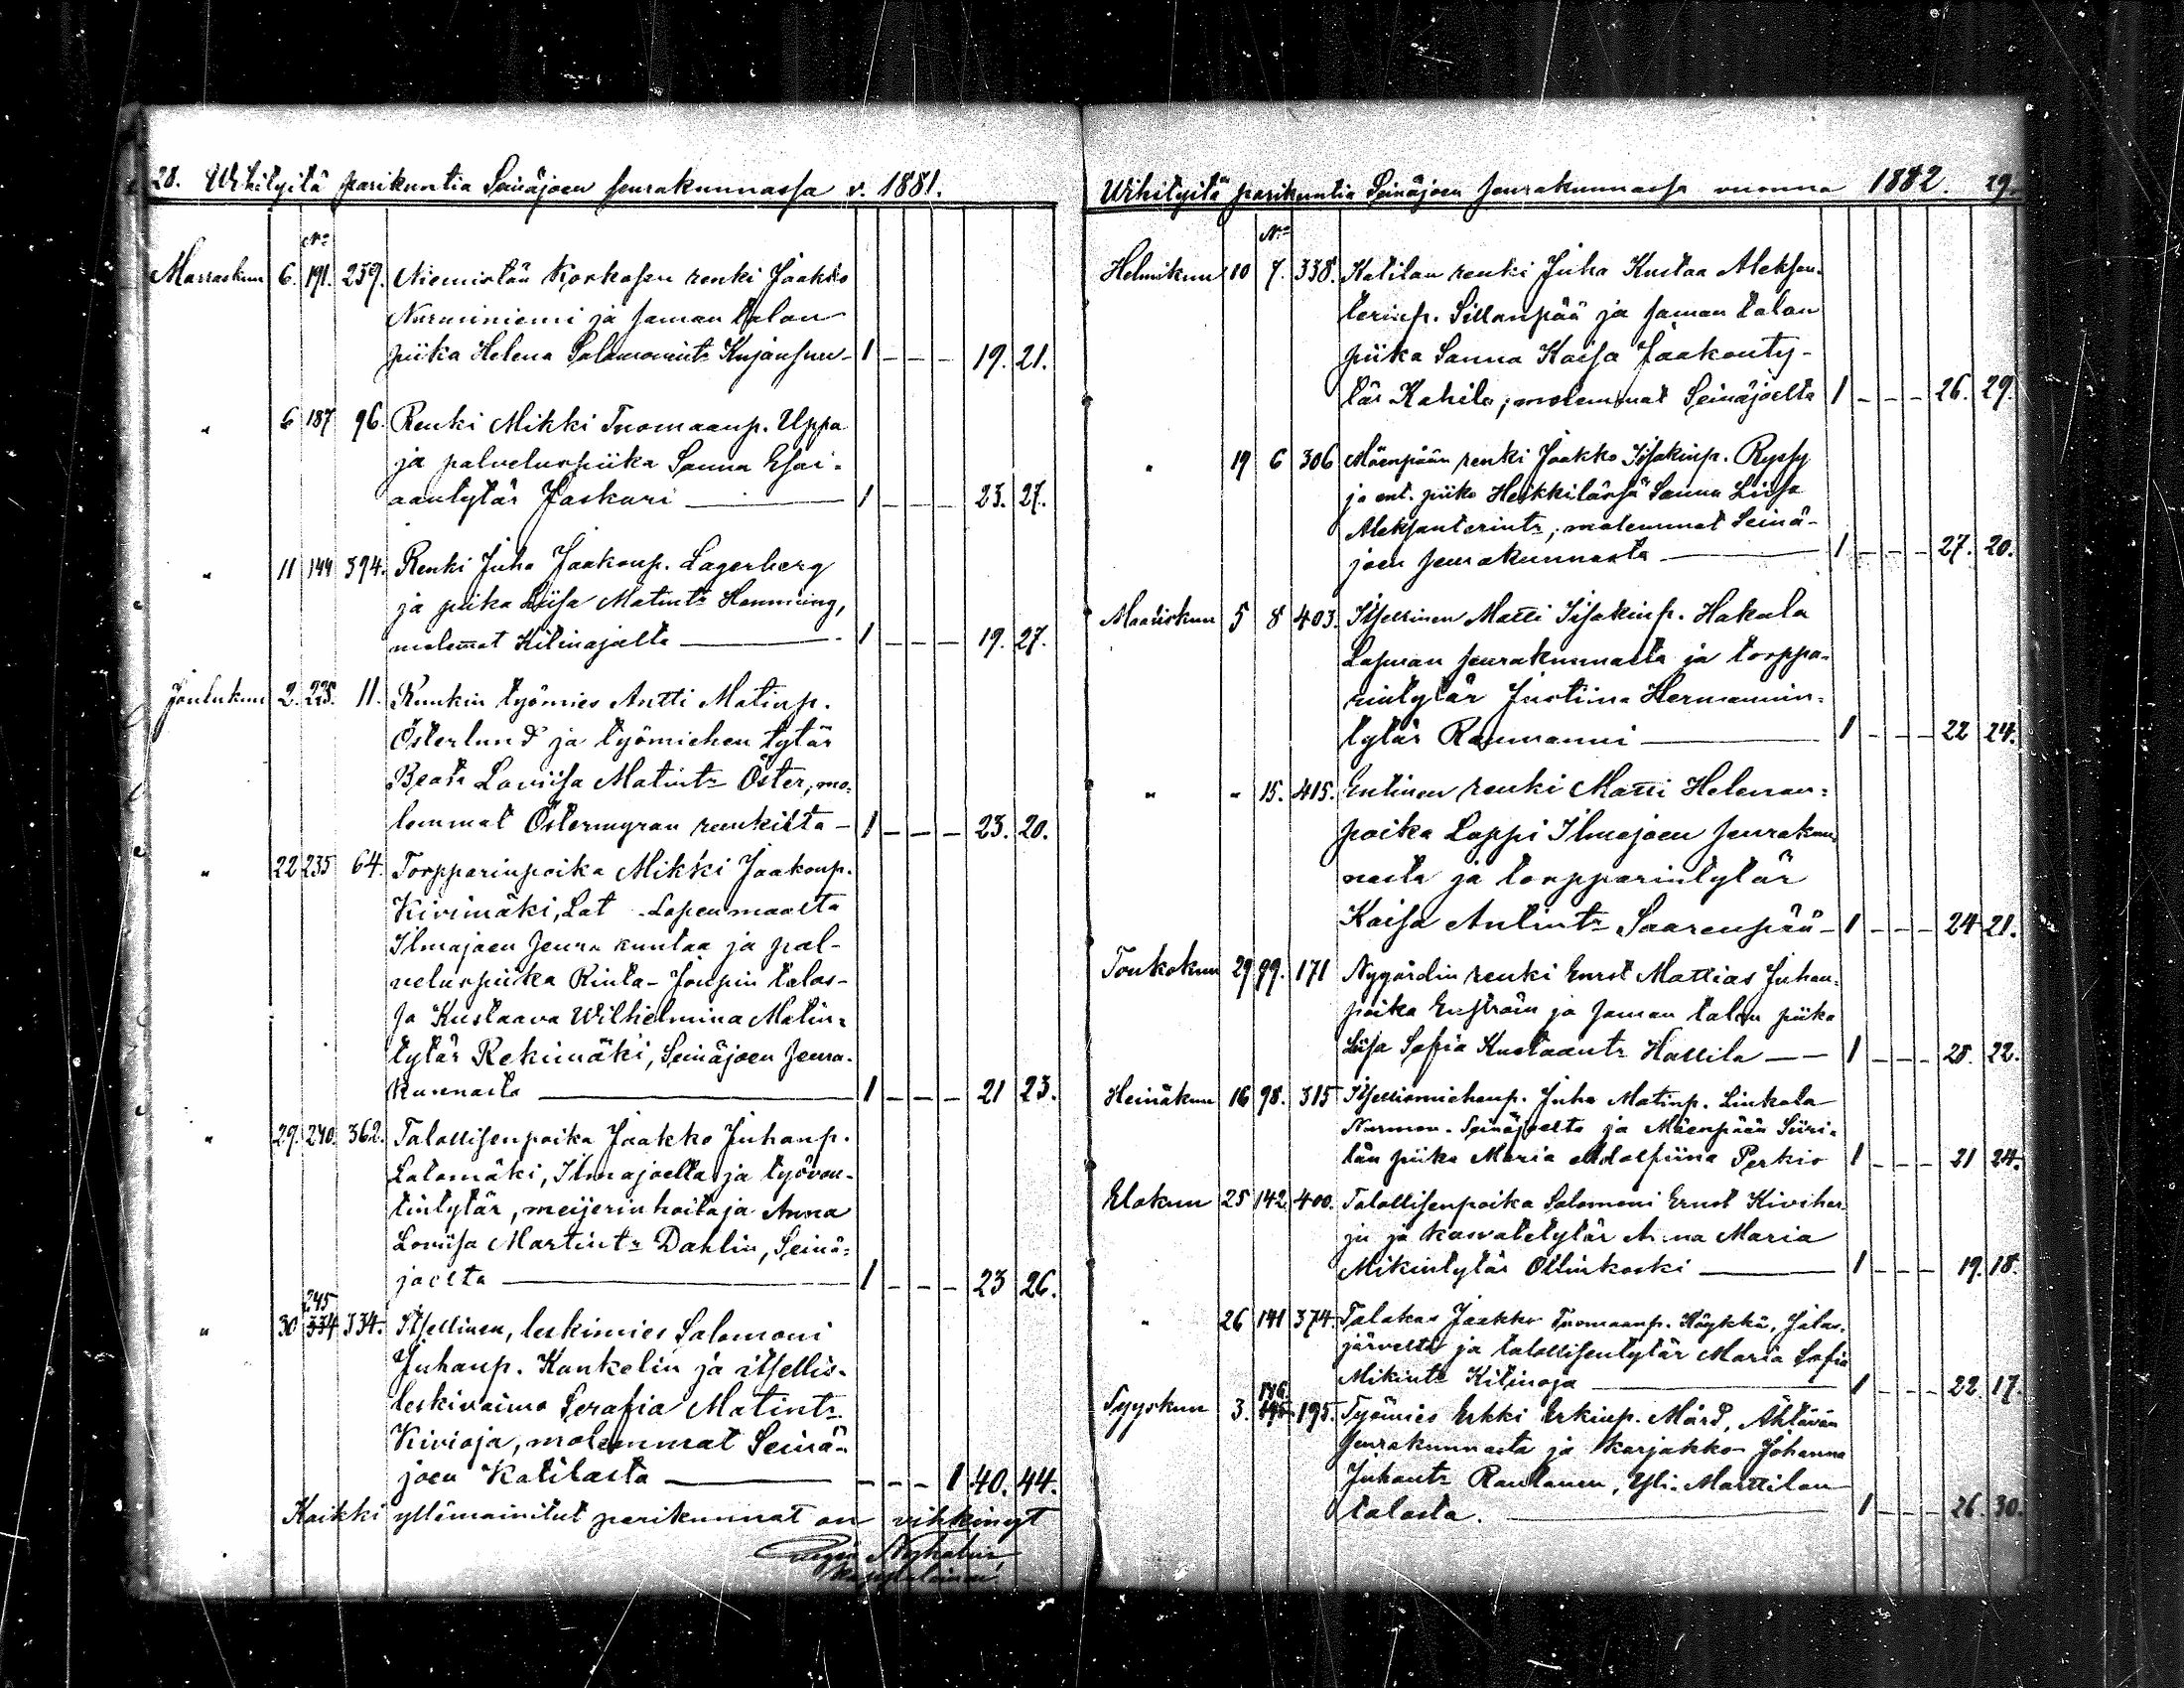 28. Wihityitä parikuntia Seinäjoen seurakunnassa v. 1881.
No
Marraskuu 6. 191. 259. Niemistön Korkasen renki Jaakko
Nurminiemi ja saman talon
piika Helena Salomonintr Kujansuu - 1 - - - 19. 21.
" 6 187 96. Renki Mikki Tuomaanp. Uppa
ja palveluspiika Sanna Esai-
aantytär Jaskari — 1 - - - 23. 27.
" 11 144 394. Renki Juho Jaakonp. Lagerberg
ja piika Liisa Matintr Hemming,
molemat Kitinojalta — 1 - - - 19. 27.
Joulukuu 2. 225. 11. Ruukin työmies Antti Matinp.
Österlund ja työmiehen tytär
Beata Loviisa Matintr Öster, mo-
lemmat Östermyran ruukilta - 1 - - - 23. 20.
" 22 235 64. Torpparinpoika Mikki Jaakonp.
Kivimäki, Lat Lapenmaalta
Ilmajoen seurakuntaa ja pal-
veluspiika Rinta-Joupin talos-
sa Kustaava Wilhelmina Matin-
tytär Rekimäki, Seinäjoen seura-
kunnasta — 1 - - - 21 23.
" 29. 240. 362. Talollisenpoika Jaakko Juhanp.
Latomäki, Ilmajoella ja työvou-
tintytär, meijerinhoitaja Anna
Loviisa Martintr Dahlin, Seinä-
joelta — 1 - - - 23 26.
245
" 30 334 334. Itsellinen, leskimies Salomoni
Juhanp. Kankelin ja itsellis-
leskivaimo Serafia Matintr
Kivioja, molemmat Seinä-
joen Katilasta — - - - 1 40. 44.
Kaikki yllämainitut parikunnat on vihkinyt
Nyholm
kappalainen.
Wihityitä parikuntia Seinäjoen seurakunnassa vuonna 1882. 29.
No
Helmikuu 10 7. 338. Katilan renki Juha Kustaa Aleksan-
terinp. Sillanpää ja saman talon
piika Sanna Kaisa Jaakonty-
tär Kahila; molemmat Seinäjoelta 1 - - - 26. 29.
" 19 6 306 Mäenpään renki Jaakko Iisakinp. Ryssy
ja ent. piika Heikkilässä Sanna Liisa
Aleksanterintr; molemmat Seinä-
joen seurakunnasta — 1 - - - 27. 20.
Maaliskuu 5 8 403. Itsellinen Matti Iisakinp. Hakala
Lapuan seurakunnasta ja torppa-
rintytär Justiina Hermannin-
tytär Rammanni — 1 - - - 22 24.
" " 15. 415. Entinen renki Matti Helenan-
poika Loppi Ilmajoen seurakun-
nasta ja torpparintytär
Kaisa Antintr Saarenpää - 1 - - - 24 21.
Toukokuu 29 99. 171 Nygårdin renki Ernst Mattias Juhan-
poika Enström ja saman talon piika
Liisa Sofia Kustaantr Hallila — 1 - - - 28. 22.
Heinäkuu 16 98. 315 Itsellismiehenp. Juha Matinp. Linkola
Nurmon-Seinäjoelta ja Mäenpään Siiri-
län piika Maria Adolfiina Perkiö 1 - - - 21 24.
Elokuu 25 142. 400. Talollisenpoika Salomoni Ernst Kivihar-
ju ja kasvatetytär Anna Maria
Mikintytär Ollinkoski — 1 - - - 19. 18.
" 26 141 374. Talokas Jaakko Tuomaanp. Köykkä, Jalas-
järveltä ja talollisentytär Maria Sofia
Mikintr Kitinoja — 1 - - - 22. 17.
146.
Syyskuu 3. 195. Työmies Erkki Erkinp. Mård, Ähtävän
seurakunnasta ja karjakko Johanna
Juhantr Rantanen, Yli-Marttilan
talosta. — 1 - - - 26. 30.